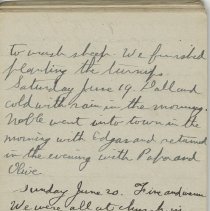 to wash sheep. We finished
planting the turnips.
Saturday June 19. Dull and
cold with rain in the morning.
Noble went into town in the
morning with Edgar and returned
in the evening with Papa and
Olive.
Sunday June 20. Fine and warm
We were all at church in